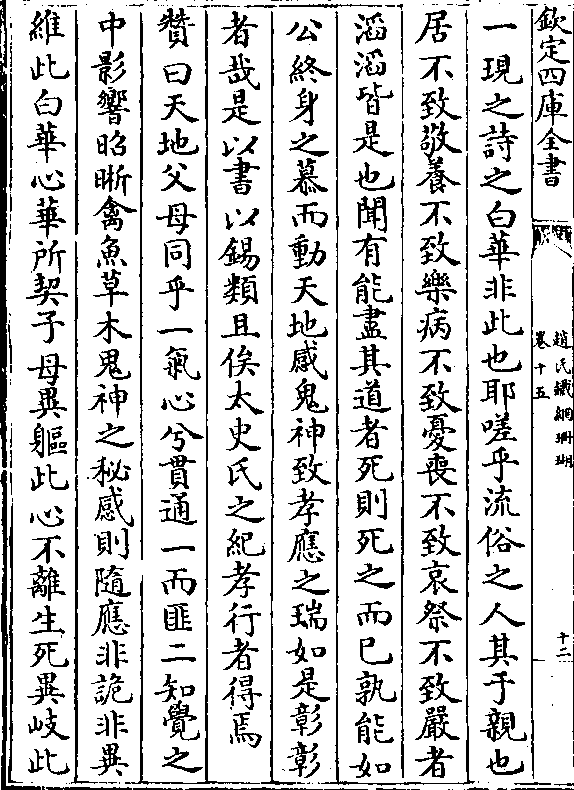 欽定四庫全書
趙氏鐵網珊瑚
卷十五
十二
一現之詩之白華非此也耶嗟乎流俗之人其于親也
居不致敬養不致樂病不致憂喪不致哀祭不致嚴者
滔滔皆是也聞有能盡其道者死則死之而已孰能如
公終身之慕而動天地感鬼神致孝應之瑞如是彰彰
者哉是以書以錫類且俟太史氏之紀孝行者得焉
贊曰天地父母同乎一氣心兮貫通一而匪二知覺之
中影響昭晰禽魚草木鬼神之秘感則隨應非詭非異
維此白華心華所契子母異軀此心不離生死異岐此